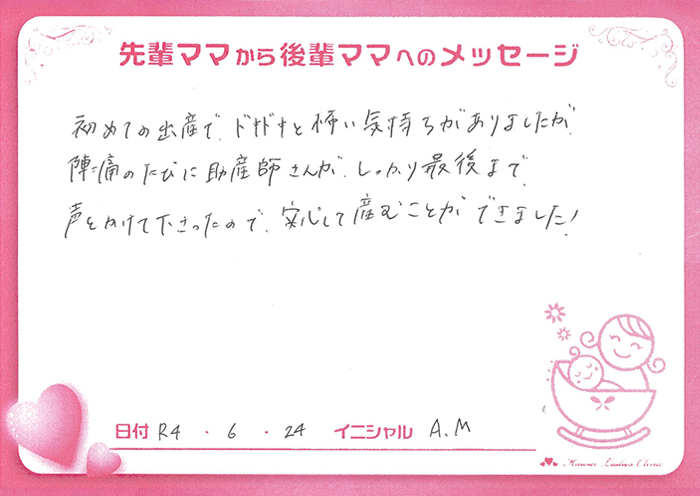 先輩ママから後輩ママへのメッセージ
初めての出産で、ドキドキと怖い気持ちがありましたが、
陣痛のたびに助産師さんが、しっかり最後まで
声をかけて下さったので、安心して産むことができました!
日付 R4 ・ 6 ・ 24 イニシャル A.M
Kawai Ladies Clinic